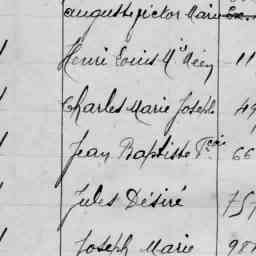 auguste pictor Marie
Henri Louis Mie 11
Charles Marie Joseph 49
Jean Baptiste 66
Jules Désiré 757
Joseph Marie 98